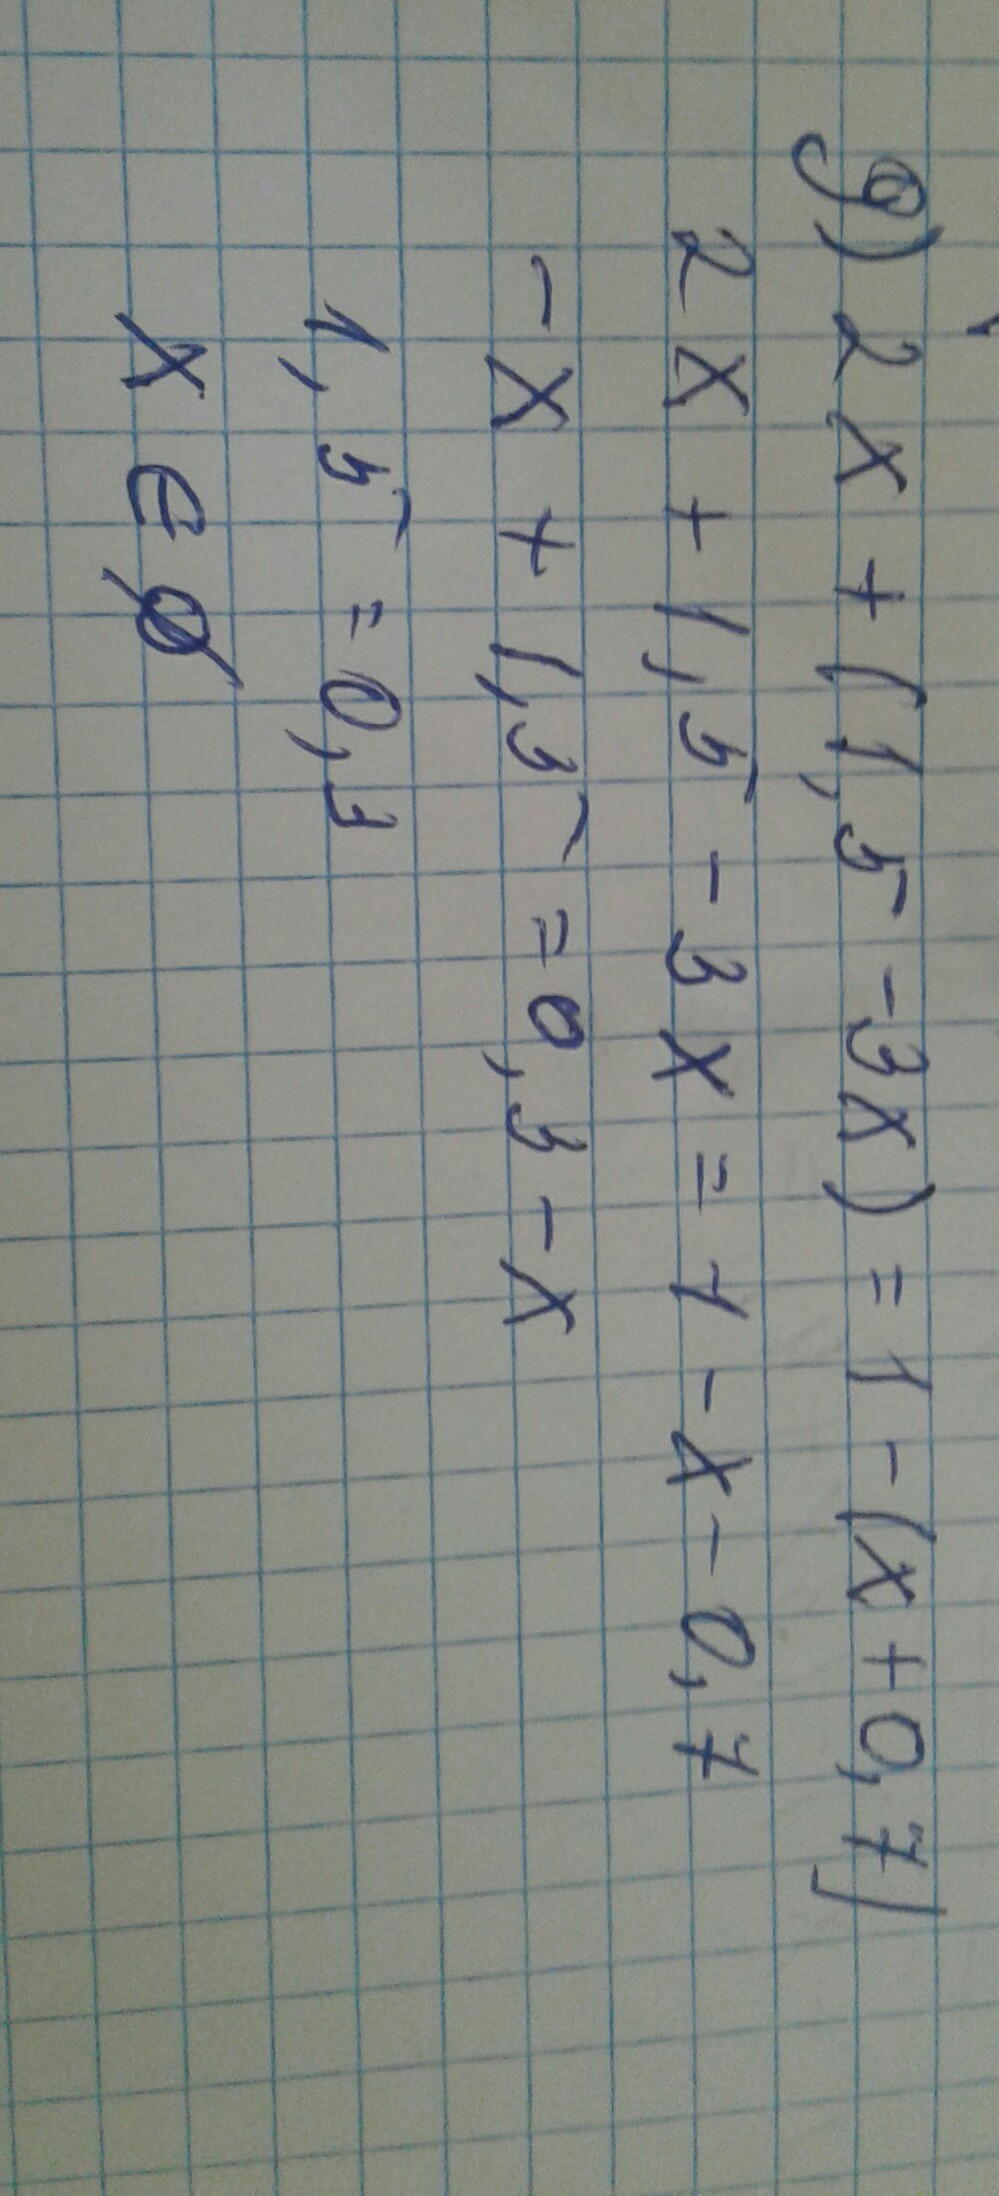 д) 2x + (1,5 - 3x) = 1 - (x + 0,7)
2x + 1,5 - 3x = 1 - x - 0,7
-x + 1,5 = 0,3 - x
1,5 = 0,3
x ∈ ∅